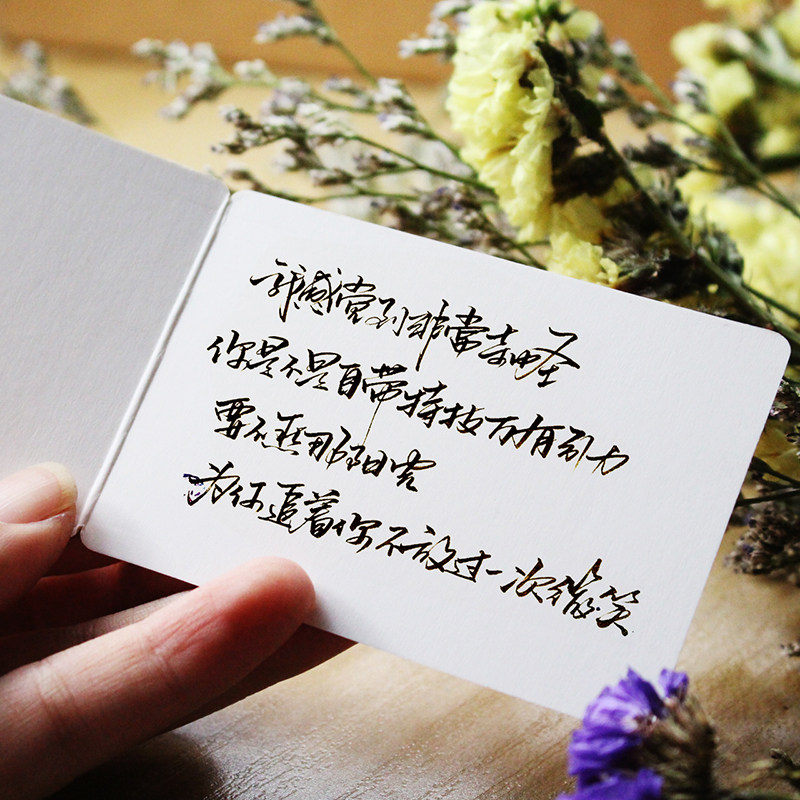 我感觉到非常奇怪
你是不是自带特技万有引力
要不然那阳光
为何追着你不放过一次微笑